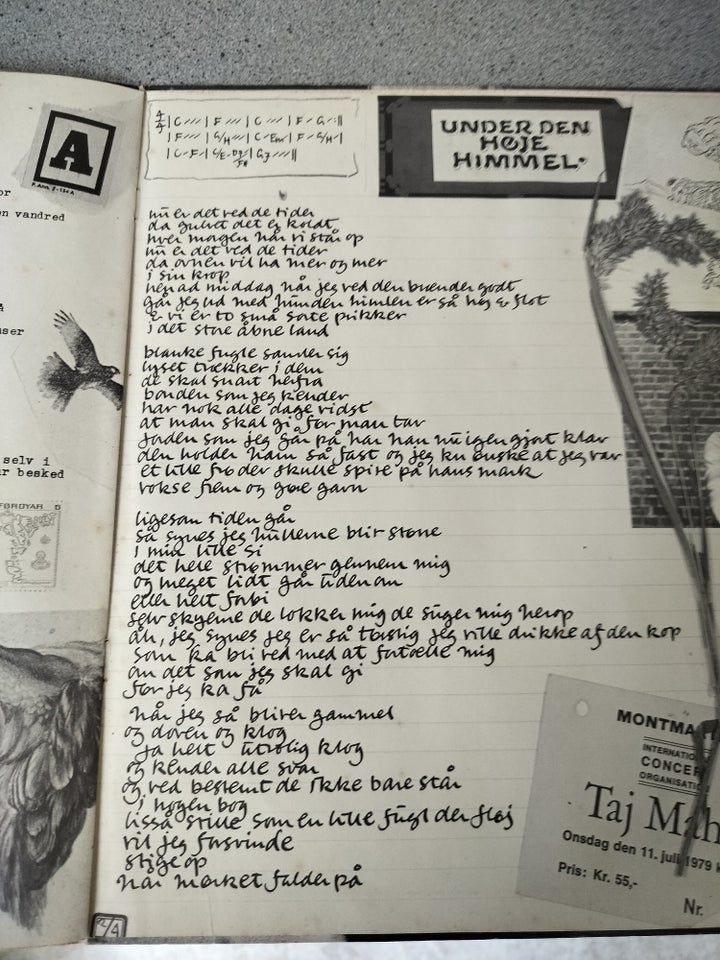 A
or
en vandred
user
selv i
r besked
FØROYAR
4/4 | C /// | F /// | C /// | F / G / :||
| F /// | G/H /// | C / Em / | F / G/H / |
| C / F / | G7 /// ||
UNDER DEN
HØJE
HIMMEL
nu er det ved de tider
da gulvet det er koldt
hver morgen når vi står op
nu er det ved de tider
da ovnen vil ha mer og mer
i sin krop
henad middag når jeg ved den brænder godt
går jeg ud med hunden himlen er så høj & flot
& vi er to små sorte prikker
i det store åbne land
blanke fugle samler sig
lyset trækker i dem
de skal snart herfra
bonden som jeg kender
har nok alle dage vidst
at man skal gi før man tar
Jorden som jeg går på har han nu igen gjort klar
den holder ham så fast og jeg ku ønske at jeg var
et lille frø der skulle spire på hans mark
vokse frem og gøre gavn
ligesom tiden går
så synes jeg hullerne blir større
i min lille si
det hele strømmer gennem mig
og meget lidt går udenom
eller helt forbi
selv skyerne de lokker mig de suger mig herop
åh, jeg synes jeg er så tørstig jeg ville drikke af den kop
som ka bli ved med at fortælle mig
om det som jeg skal gi
før jeg ka få
når jeg så bliver gammel
og doven og klog
ja helt utrolig klog
og kender alle svar
og ved bestemt de ikke bare står
i nogen bog
lisså stille som en lille fugl der fløj
vil jeg forsvinde
stige op
når mørket falder på
MONTMA
INTERNATIO
CONCER
ORGANISATIO
Taj Mah
Onsdag den 11. juli 1979 k
Pris: Kr. 55,-
Nr.